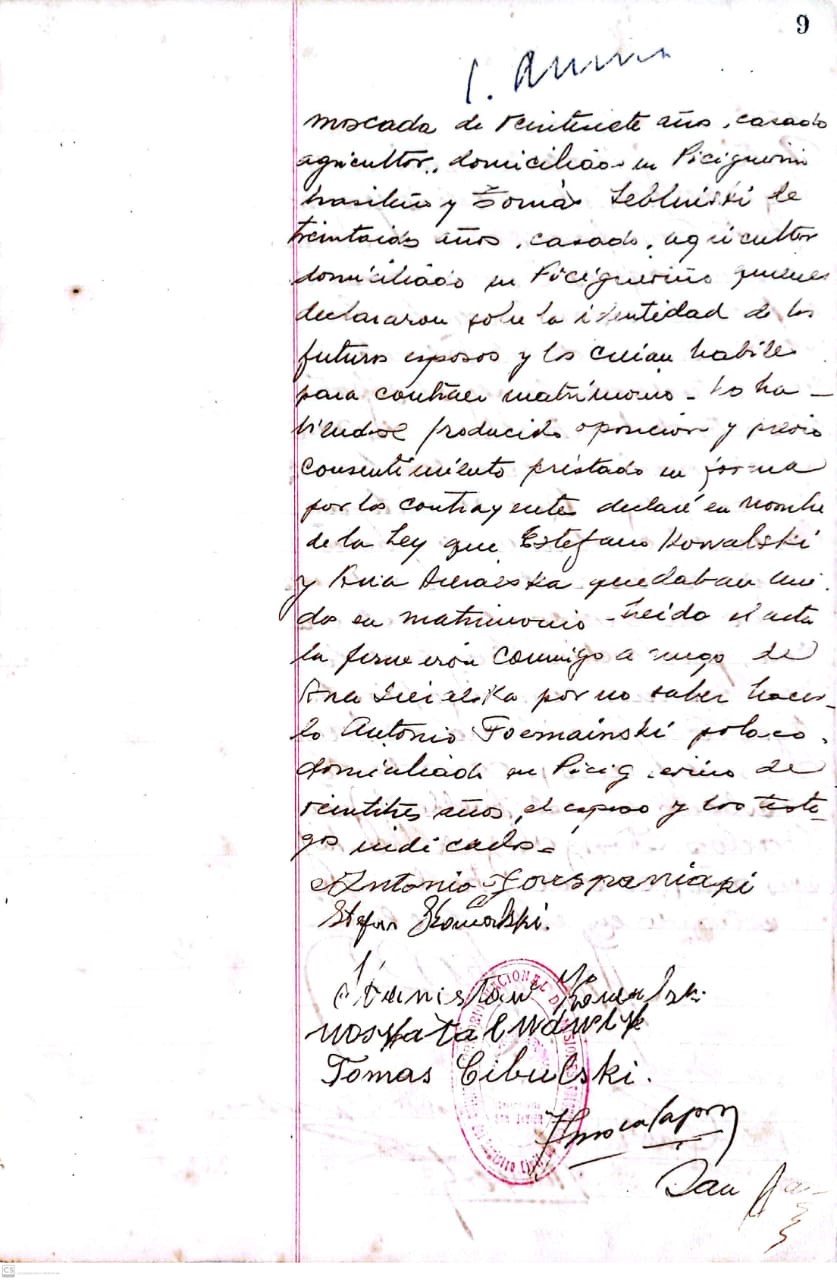 9
moscada de veintisiete años, casado
agricultor, domiciliado en
brasileño y Tomás de
treintaidos años, casado, agricultor
domiciliado en quienes
declararon sobre la identidad de los
futuros esposos y los creian habiles
para contraer matrimonio - No ha-
biendose producido oposicion y previo
consentimiento prestado en forma
por los contrayentes declaré en nombre
de la Ley que Estefano Kowalski
y Ana quedaban uni-
dos en matrimonio - Leida el acta
la firmaron conmigo a ruego de
Ana por no saber hacer-
lo Antonio polaco,
domiciliado en de
veintitres años, el esposo y los testi-
gos indicados =
Antonio
Stefan Kowalski.
Tomas Cibulski.